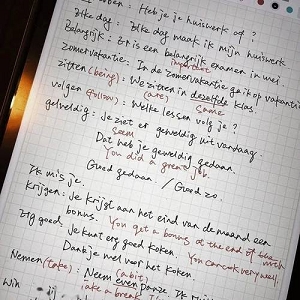 hebben: Heb je je huiswerk af?
Elke dag: Elke dag maak ik mijn huiswerk
Belangrijk: Er is een belangrijk examen in mei
important
zomervakantie: In de zomervakantie ga ik op vakantie
zitten (being): We zitten in dezelfde klas.
(are) same
volgen (follow): Welke lessen volg je?
geweldig: Je ziet er geweldig uit vandaag
seem
Dat heb je geweldig gedaan.
You did a great job
Goed gedaan. / Goed zo.
Ik mis je.
Krijgen: Je krijgt aan het eind van de maand een
bonus. You get a bonus at the end of the month
Erg goed, je kunt erg goed koken. You can cook very well.
Dank je wel voor het koken.
Nemen (take): Neem even pauze.
(a bit)
take a break